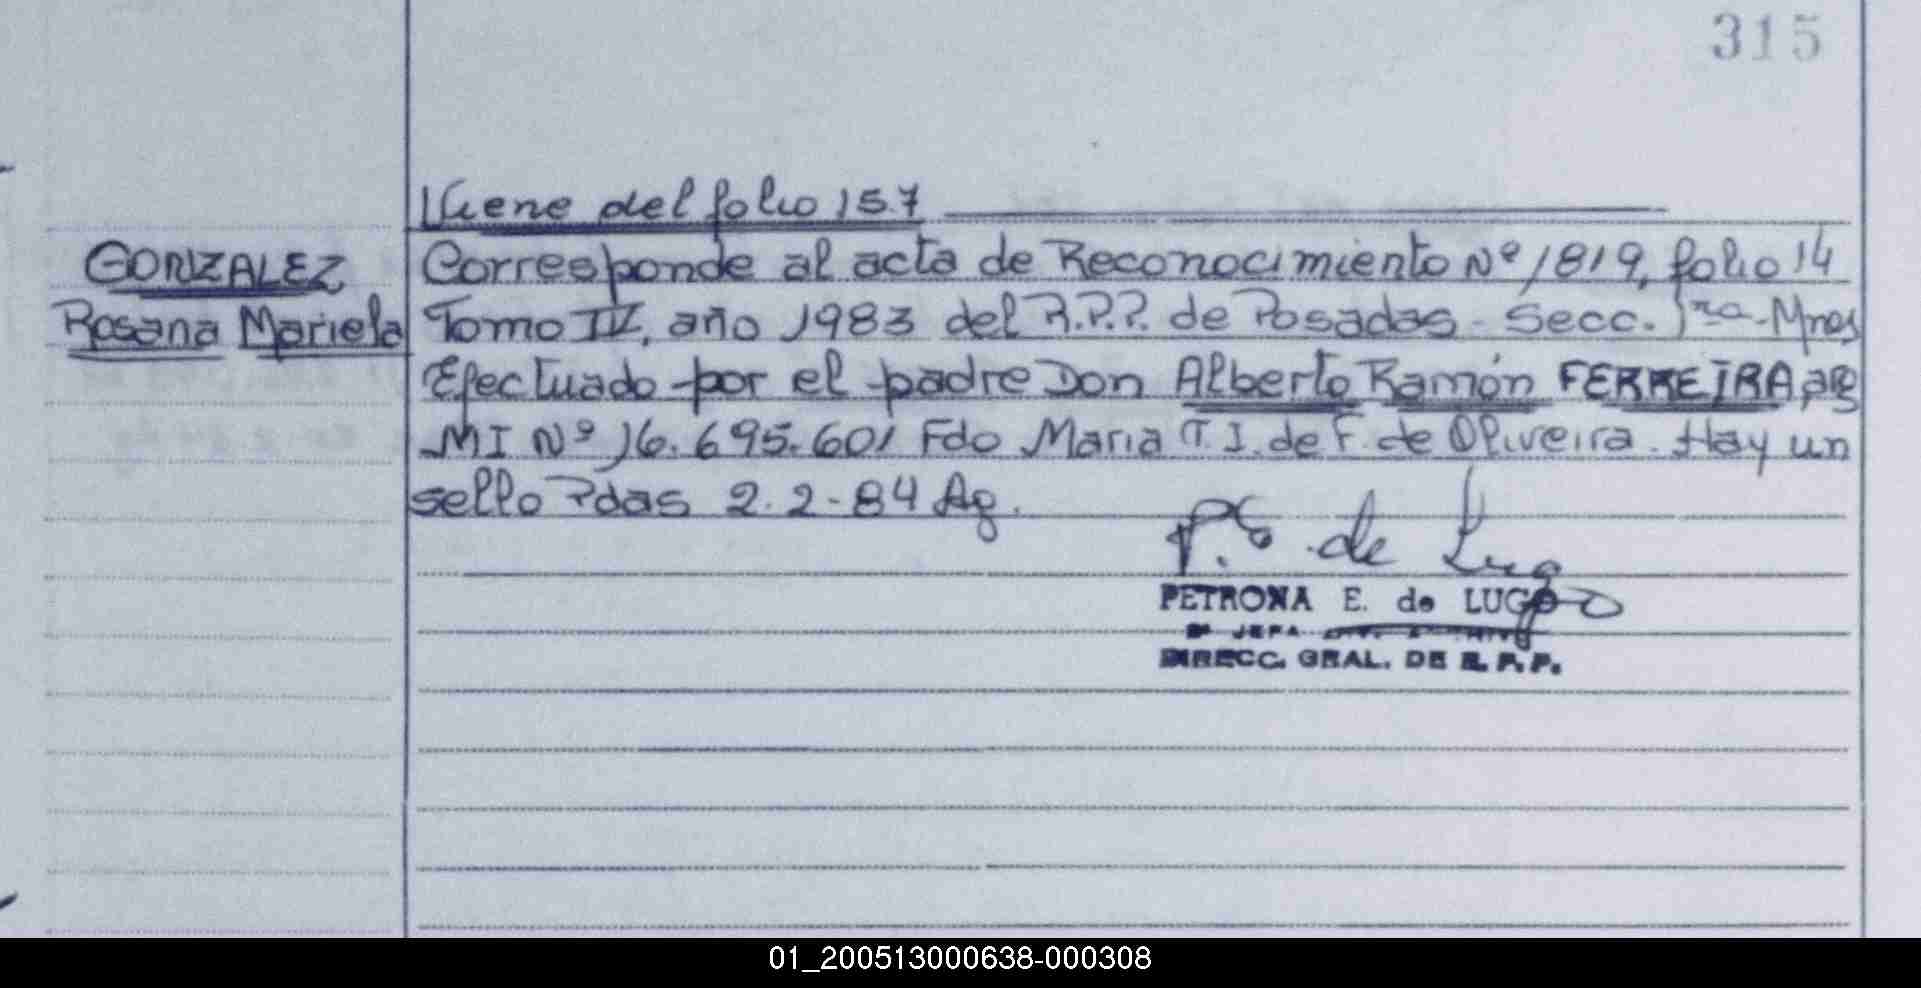 315
Viene del folio 157
GONZALEZ
Rosana Mariela
Corresponde al acta de Reconocimiento Nº 1819, folio 14
Tomo IV, año 1983 del R.P.P. de Posadas - Secc. 1ra - Mnes
Efectuado por el padre Don Alberto Ramón FERREIRA, arg
MI Nº 16.695.601 Fdo Maria T. I. de F. de Oliveira. Hay un
sello Pdas 2.2-84 Ag.
P.E. de Lugo
PETRONA E. de LUGO
JEFA
DIRECC. GRAL. DE R. P. P.
01_200513000638-000308